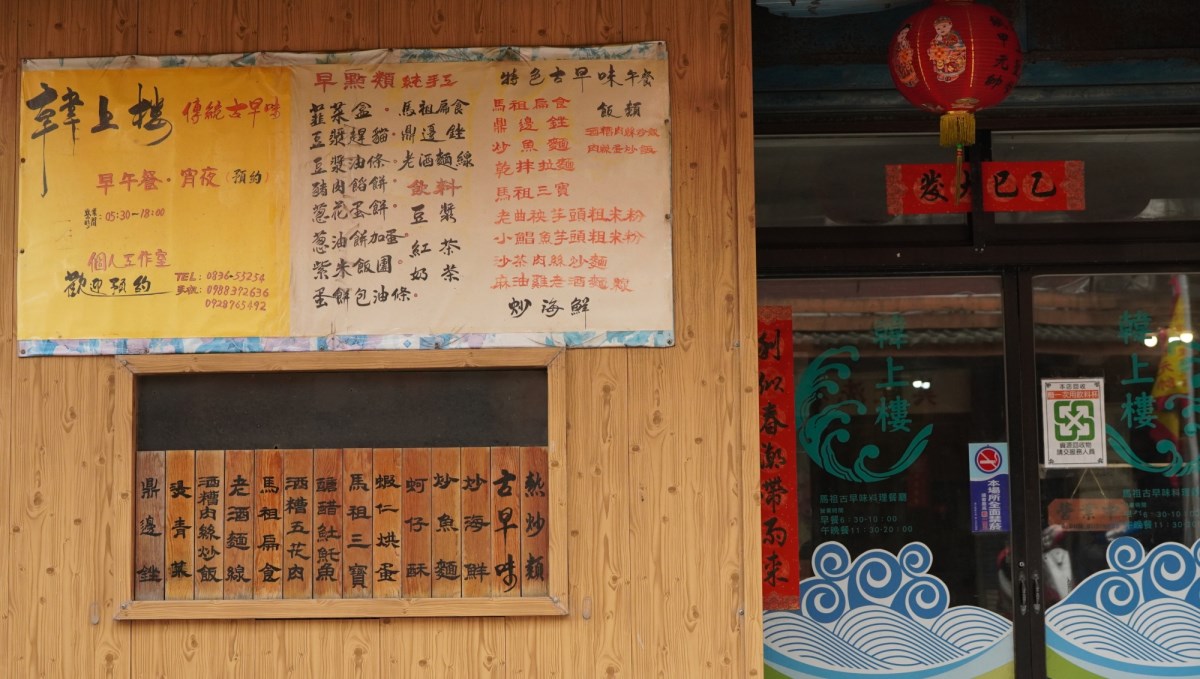 韓上樓
傳統古早味
早午餐·宵夜(預約)
: 05:30-18:00
個人工作室
歡迎預約
TEL: 0836-55254
手機: 0988392636
0928765492
早點類純手工
韮菜盒·
豆漿
豆漿油條·
豬肉餡餅·
蔥花蛋餅·
蔥油餅加蛋·
紫米飯團·
蛋餅包油條·
馬祖扁食
鼎邊銼
老酒麵線
飲料
豆漿
紅茶
奶茶
特色古早味午餐
馬祖扁食
鼎邊銼
炒魚麵
乾拌拉麵
馬祖三寶
老曲秧芋頭粗米粉
小鯧魚芋頭粗米粉
沙茶肉絲炒麵
麻油雞老酒麵線
炒海鮮
飯類
酒糟肉絲炒飯
肉絲蛋炒飯
熱炒類
古早味
炒海鮮
炒魚麵
蚵仔酥
蝦仁烘蛋
馬祖三寶
醣醋魠魚
酒糟五花肉
馬祖扁食
老酒麵線
酒糟肉絲炒飯
燙青菜
鼎邊銼
乙巳大發
韓上樓
馬祖古早味料理餐廳
營業時間
早餐6:30-10:00
午晚餐11:30-20:00
本場所全面禁菸
本店回收
一次用飲料杯
資源回收物
請交服務人員
韓上樓
馬祖古早味料理餐廳